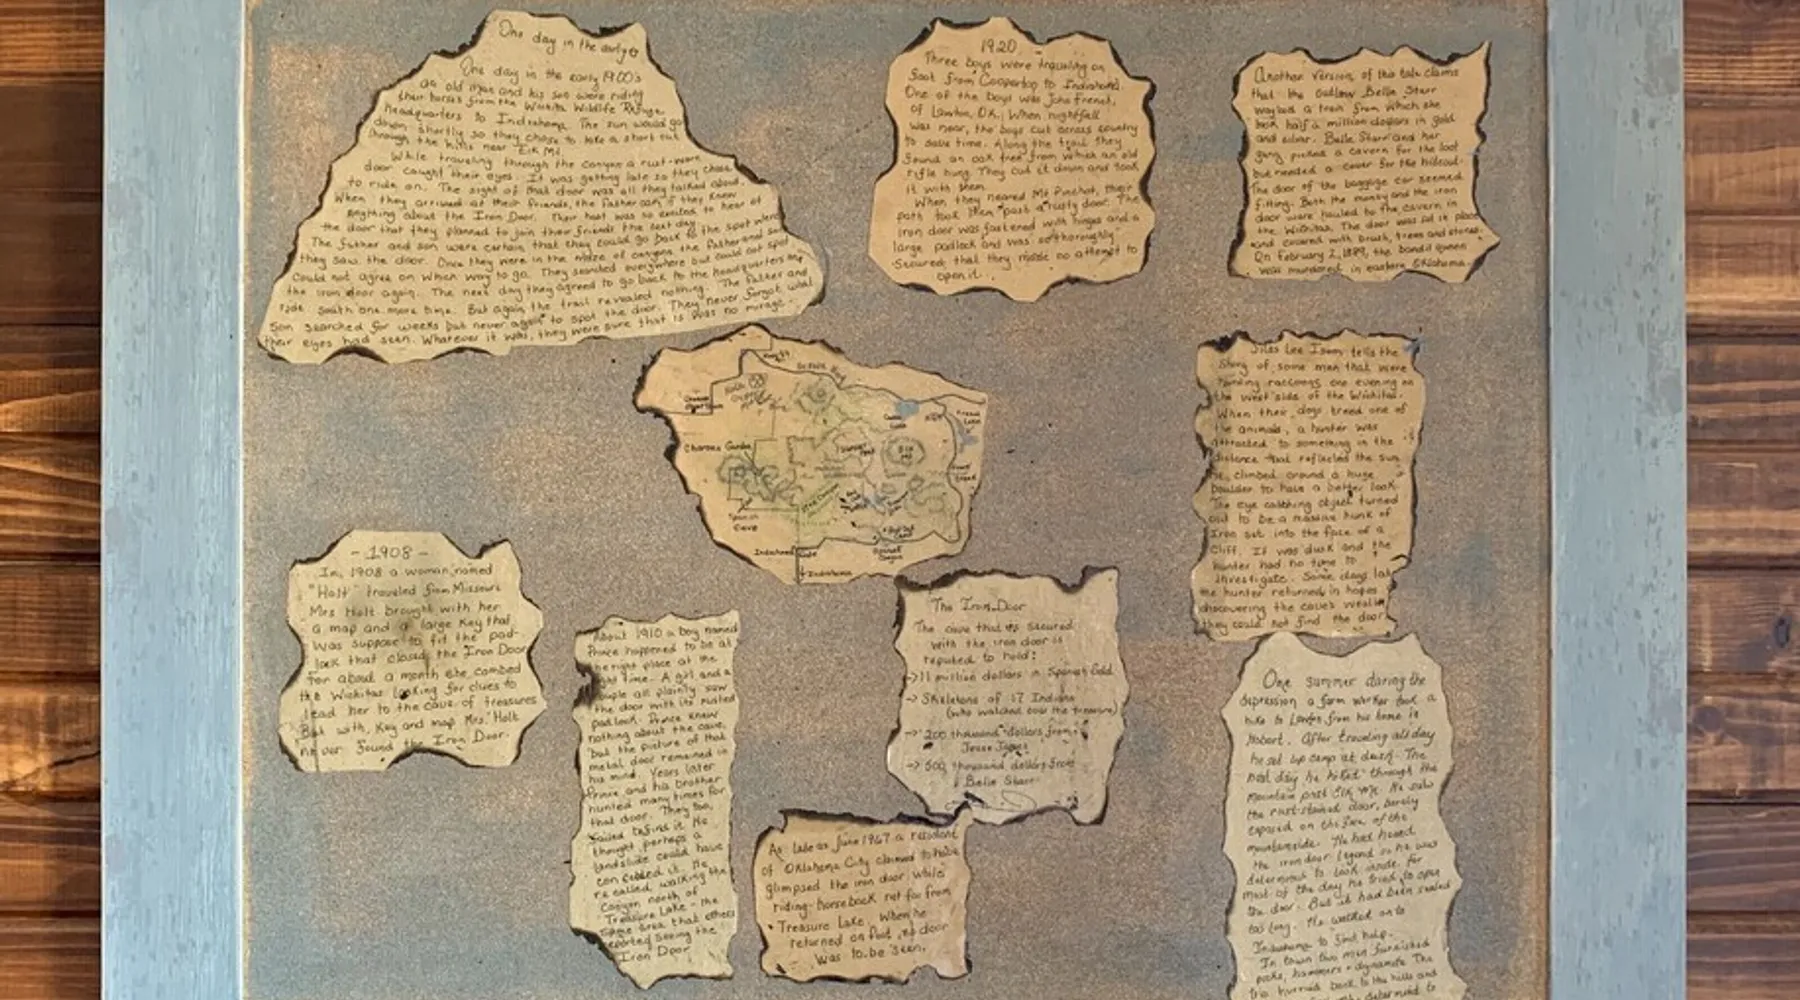 One day in the early
One day in the early 1900's
an old man and his son were riding
their horses from the Wichita Wildlife Refuge
headquarters to Indiahoma. The sun would go
down shortly so they chose to take a short cut
through the hills near Elk Mt.
While traveling through the canyon a rust-worn
door caught their eyes. It was getting late so they chose
to ride on. The sight of that door was all they talked about.
When they arrived at their friends, the father asked if they knew
anything about the Iron Door. Their host was so excited to hear of
the door that they planned to join their friends the next day.
The father and son were certain that they could go back to the spot were
they saw the door. Once they were in the maze of canyons the father and son
Could not agree on which way to go. They searched everywhere but could not spot
the iron door again. The next day they agreed to go back to the headquarters and
ride south one more time. But again the trail revealed nothing. The father and
Son searched for weeks but never again to spot the door. They never forgot what
their eyes had seen. Whatever it was, they were sure that is was no mirage.
1920
Three boys were traveling on
foot from Cooperton to Indiahoma.
One of the boys was John French,
of Lawton, OK. When nightfall
was near, the boys cut across country
to save time. Along the trail they
found an oak tree from which an old
rifle hung. They cut it down and took
it with them.
When they neared Mt Pinchot, their
path took them past a rusty door. The
iron door was fastened with hinges and a
large padlock and was so thoroughly
Secured that they made no attempt to
open it.
Another version of this tale claims
that the outlaw Belle Starr
waylaid a train from which she
took half a million dollars in gold
and silver. Belle Starr and her
gang picked a cavern for the loot
but needed a cover for the hideout.
The door of the baggage car seemed
fitting. Both the money and the iron
door were hauled to the cavern in
the Wichitas. The door was put in place
and covered with brush, trees and stones.
On February 2, 1889, the bandit queen
was murdered in eastern Oklahoma.
Scenic
Charons Garden
Elk
Mt
Spanish
Cave
Indiahoma Gate
Indiahoma
Lee Isom tells the
Story of some men that were
hunting raccoons one evening on
the west side of the Wichitas.
When their dogs treed one of
the animals, a hunter was
attracted to something in the
distance that reflected the sun
He climbed around a huge
boulder to have a better look
The eye catching object turned
out to be a massive hunk of
Iron set into the face of a
Cliff. It was dusk and the
hunter had no time to
investigate. Some days later
the hunter returned in hopes of
discovering the caves wealth
they could not find the door
- 1908 -
In, 1908 a woman named
"Holt" traveled from Missouri
Mrs Holt brought with her
a map and a large key that
was suppose to fit the pad-
lock that closed the Iron Door
For about a month she combed
the Wichitas looking for clues to
lead her to the cave of treasures
But with, Key and map Mrs. Holt
never found the Iron Door.
About 1910 a boy named
Prince happened to be at
the right place at the
right time. A girl and a
couple all plainly saw
the door with its rusted
padlock. Prince knew
nothing about the cave,
but the picture of that
metal door remained in
his mind. Years later
Prince and his brother
hunted many times for
that door. They too,
failed to find it. He
thought perhaps a
landslide could have
concealed it. He
recalled walking the
Canyon north of
Treasure Lake - the
same area that others
reported seeing the
Iron Door
The Iron Door
The cave that is secured
with the iron door is
reputed to hold:
-> 11 million dollars in Spanish Gold
-> Skeletons of 17 Indians
(who watched over the treasure)
-> 200 thousand dollars from
Jesse James
-> 500 thousand dollars from
Belle Starr
As late as June 1967 a resident
of Oklahoma City claimed to have
glimpsed the iron door while
riding horseback not far from
Treasure Lake. When he
returned on foot, no door
was to be seen.
One summer during the
depression a farm worker took a
hike to Lawton from his home in
Hobart. After traveling all day
he set up camp at dusk. The
next day he hiked through the
mountain past Elk Mt. He saw
the rust-stained door, barely
exposed on the face of the
mountainside. He had heard
the iron door legend so he was
determined to look inside. For
most of the day he tried to open
the door. But it had been sealed
too long. He walked on to
Indiahoma to find help.
In town two men furnished
picks, hammers + dynamite. The
trio hurried back to the hills and
determined to